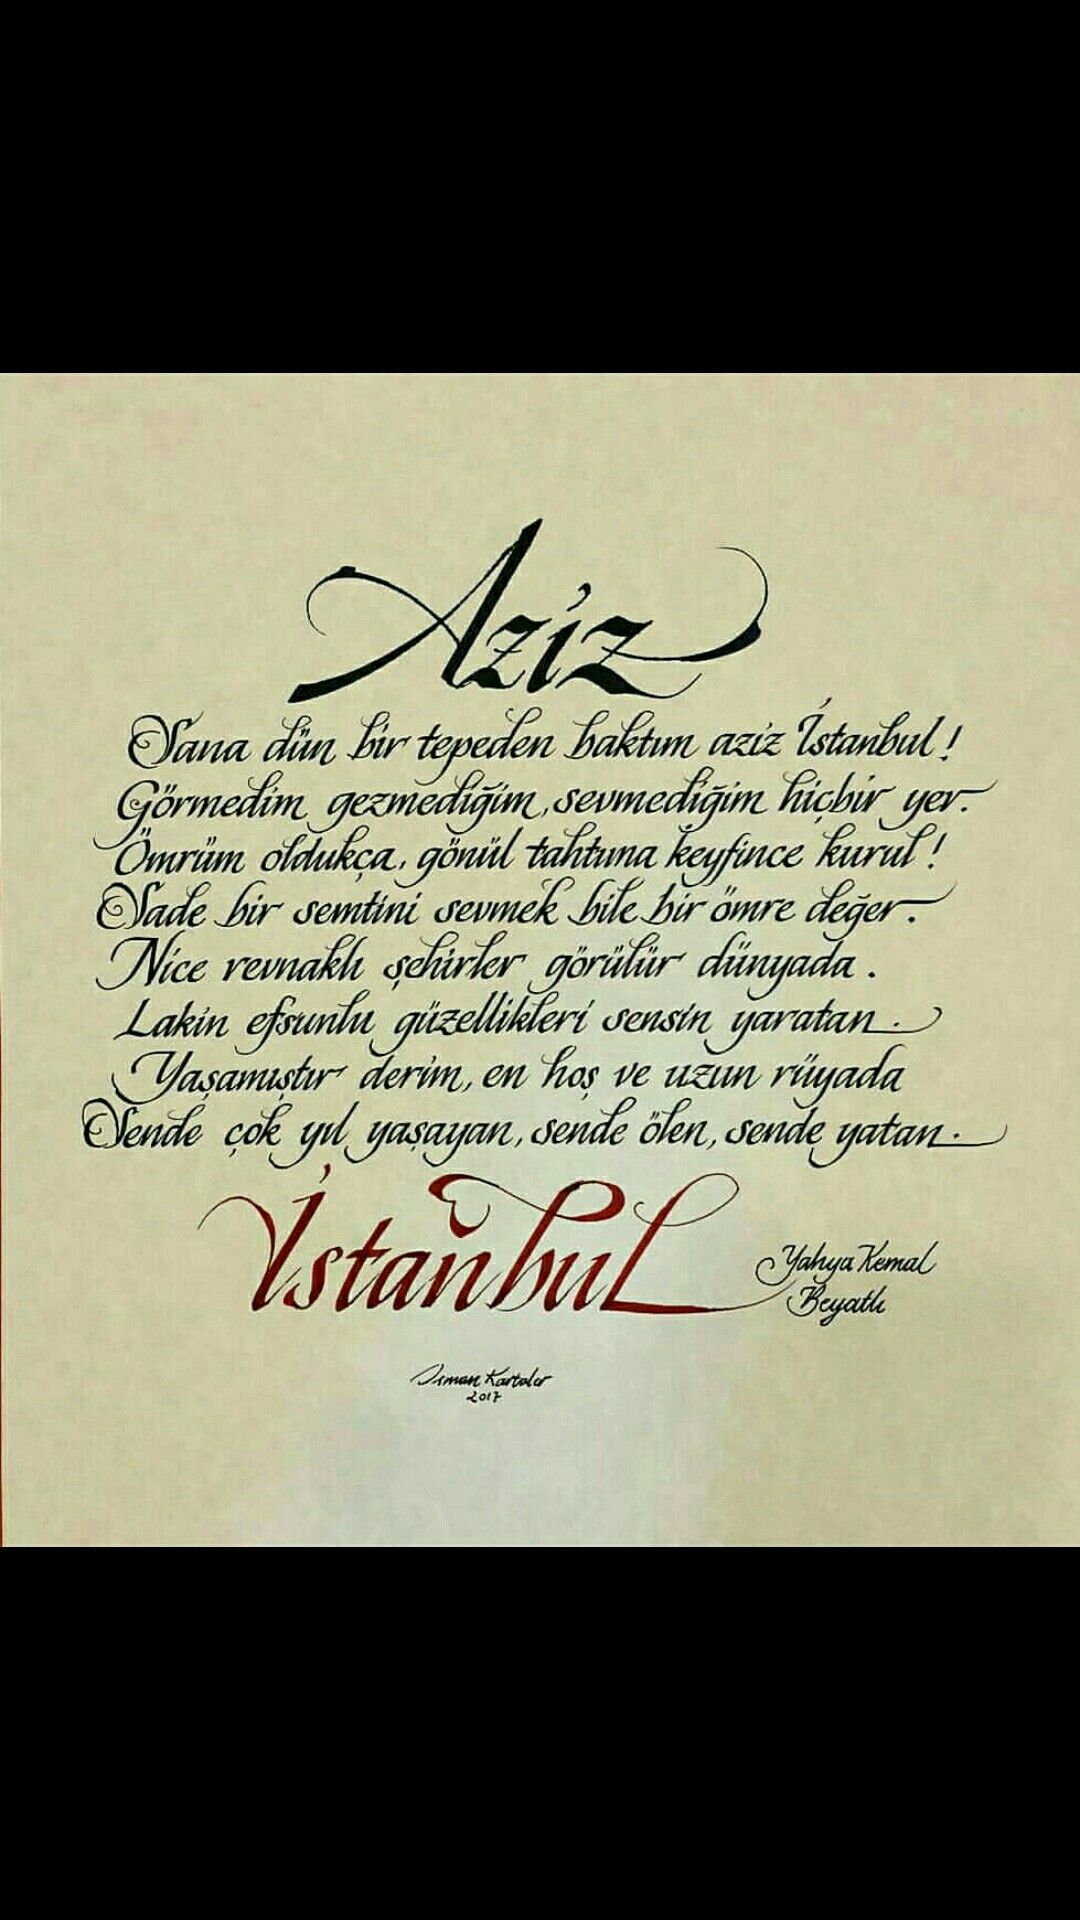 Aziz
Sana dün bir tepeden baktım aziz İstanbul!
Görmedim gezmediğim, sevmediğim hiçbir yer.
Ömrüm oldukça, gönül tahtına keyfince kurul!
Sade bir semtini sevmek bile bir ömre değer.
Nice revnaklı şehirler görülür dünyada.
Lakin efsunlu güzellikleri sensin yaratan.
Yaşamıştır derim, en hoş ve uzun rüyada
Sende çok yıl yaşayan, sende ölen, sende yatan.
İstanbul
Yahya Kemal
Beyatlı
2017